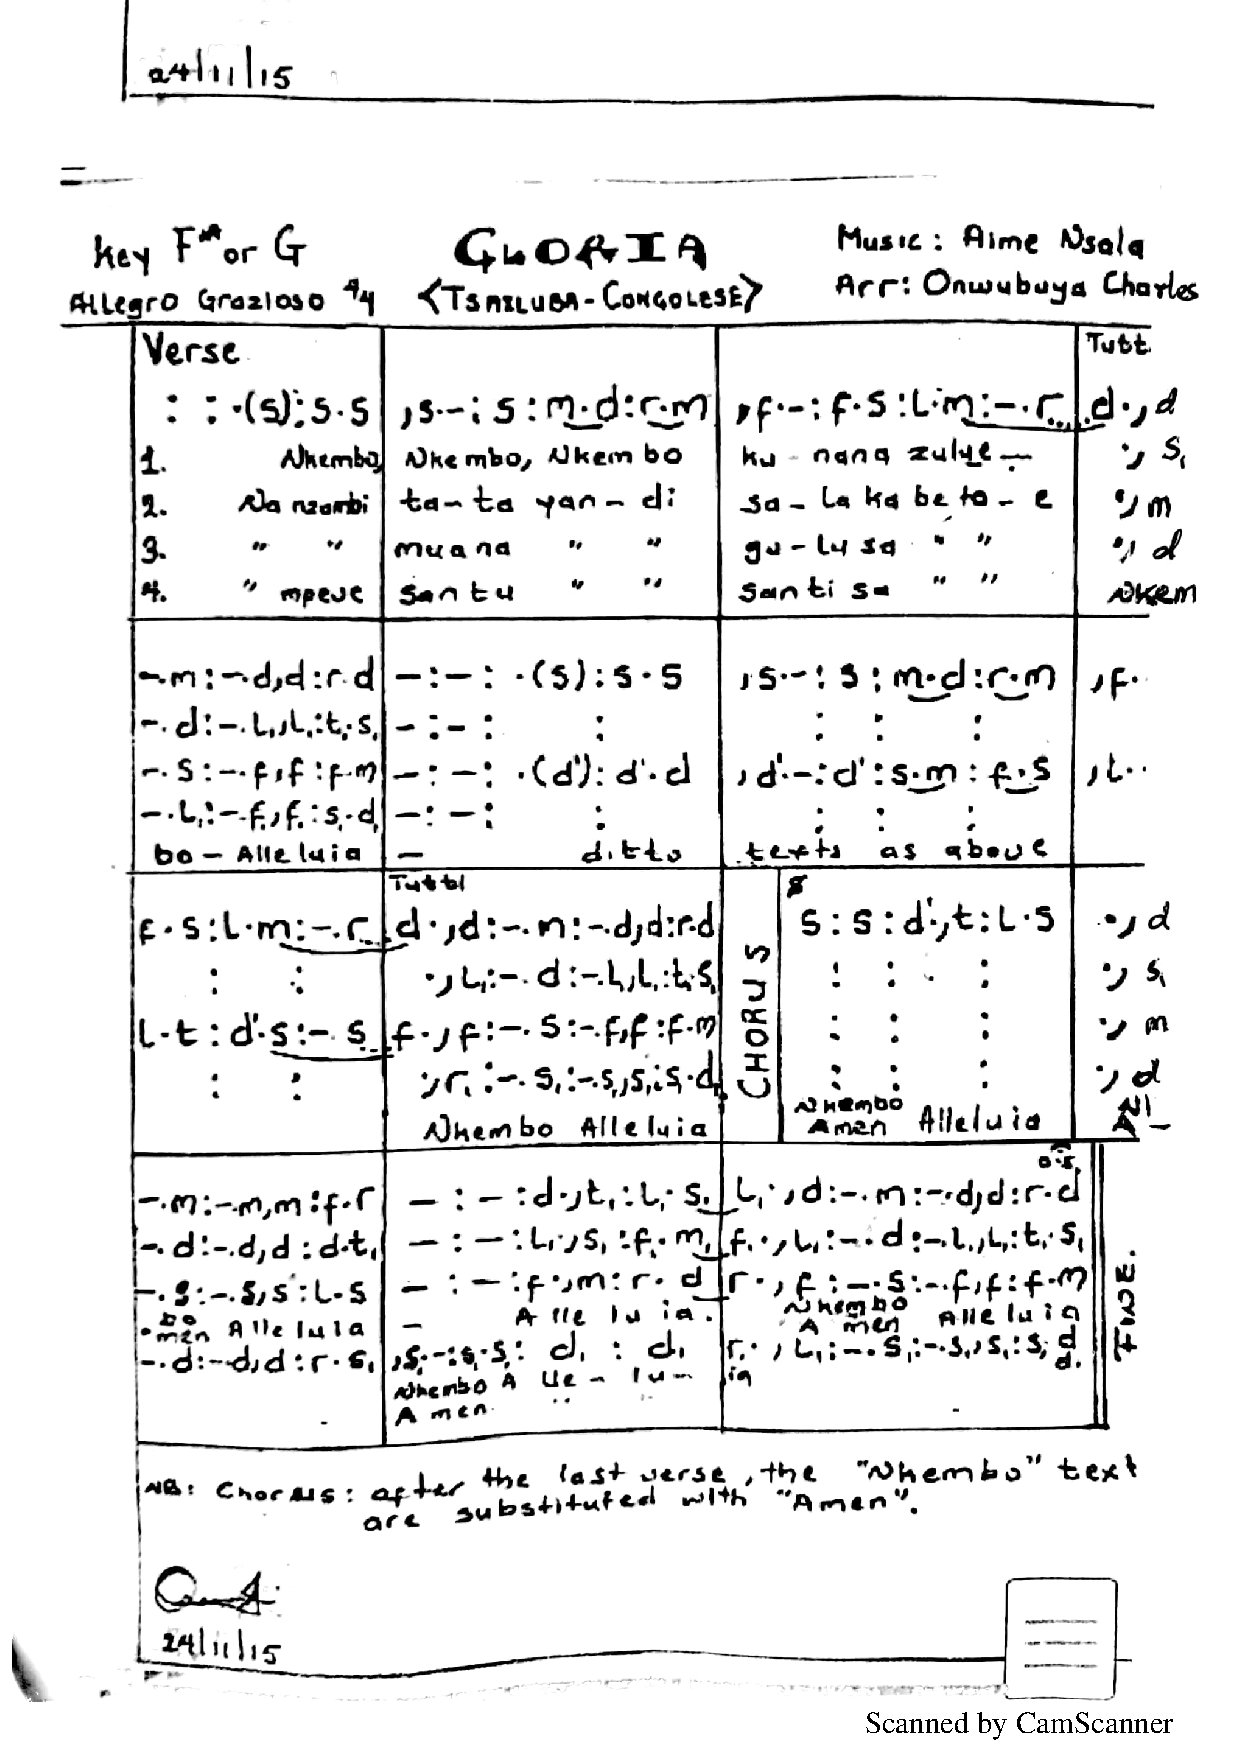 24/11/15
Key F# or G
GLORIA
Music: Aime Nsala
Allegro Grazioso 4/4
<TSHILUBA-CONGOLESE>
Arr: Onwubuya Charles
Verse
Tutt
: : .(s):s.s | ,s.-:s:m.d:r.m | ,f.-:f.s:l.m:-.r | d.,d
1. Nkembo, Nkembo, Nkembo ku-nana zulye- ., s,
2. Na nzambi ta-ta yan-di sa-la ka be to-e ., m
3. " " muana " " gu-lusa " " ., d
4. " mpeve santu " " santi sa " " Nkem
-.m:-.d,d:r.d | -:-: .(s):s.s | ,s.-:s:m.d:r.m | ,f.
-.d:-.l,,l,:t,.s, | -:-: : | : : :
-.s:-.f,f:f.m | -:-: .(d'):d'.d | ,d'.-:d':s.m:f.s | ,l..
-.l,:-.f,,f,:s,.d, | -:-: : | : : :
bo-Alleluia - ditto texts as above
Tutti
f.s:l.m:-.r | d.,d:-.m:-.d,d:r.d | CHORUS | s:s:d'.,t:l.s | .,d
: : | .,l,:-.d:-.l,,l,:t,.s, | : : : | ., s,
l.t:d'.s:-.s | f.,f:-.s:-.f,f:f.m | : : : | ., m
: : | .,r,:-.s,:-.s,,s,:s,.d, | : : : | ., d
Nkembo Alleluia Nkembo Alleluia
Amen
D.S.
-.m:-.m,m:f.r | -:-:d.,t,:l,.s, | l,.,d:-.m:-.d,d:r.d
-.d:-.d,d:d.t, | -:-:l,.,s,:f,.m, | f,.,l,:-.d:-.l,,l,:t,.s,
-.s:-.s,s:l.s | -:-:f.,m:r.d | r.,f:-.s:-.f,f:f.m
bo
men Alleluia - Alleluia. Nkembo Alleluia
A men
-.d:-.d,d:r.s, | ,s,.-:s,.s,:d,:d, | r,.,l,:-.s,:-.s,,s,:s,d d,
Nkembo A lle-lu- ia
Amen "
FINE.
NB: Chorus: after the last verse, the "Nkembo" text
are substituted with "Amen".
24/11/15
Scanned by CamScanner